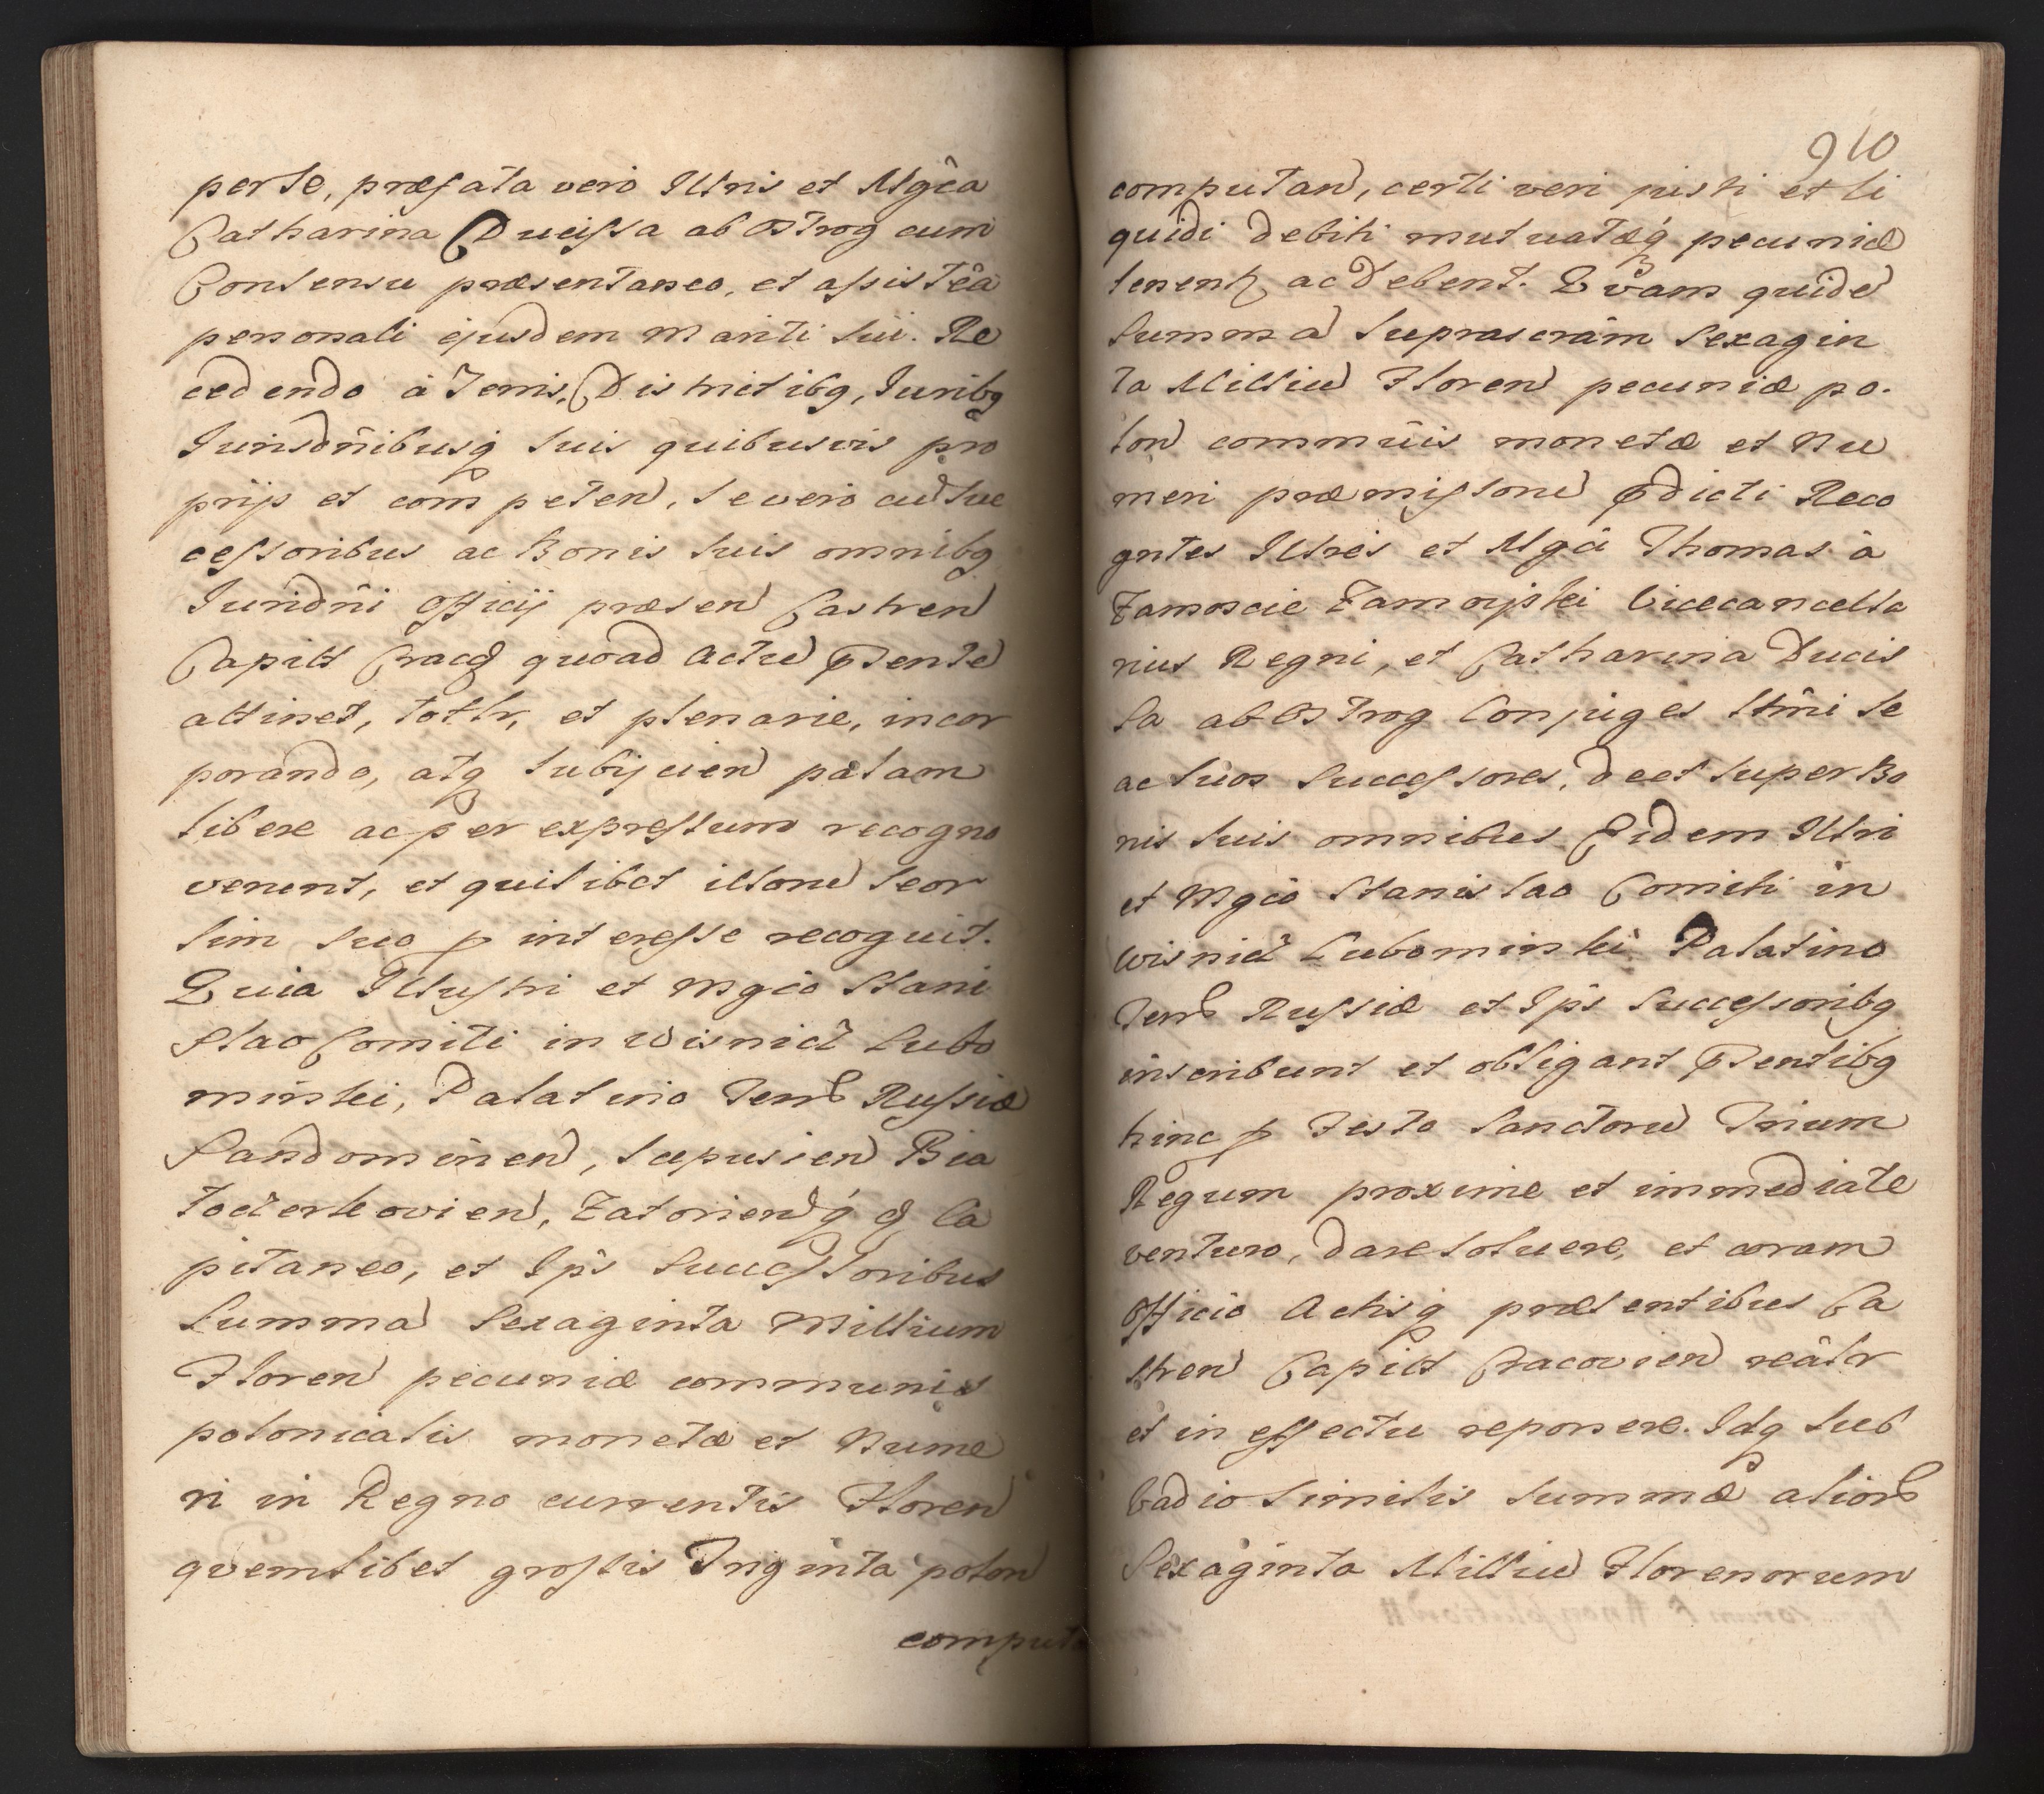 per se, præfata vero Illris et Mgca
Catharina Ducissa ab Ostrog cum
Consensu præsentaneo, et assistêa
personali ejusdem Mariti sui. Re
cedendo à Terris, Districtibq, Juribq
Jurisdñibusq suis quibusvis pro
prijs et competen, se vero cu suc
cessoribus ac Bonis suis omnibq
Juridñi Officij præsen Castren
Capitt Crac quoad Actu pstente
attinet, tottr, et plenarie, incor
porando, atq subijcien palam
libere ac per expressum recogno
verunt, et quilibet illoru seor
sim suo p interesse recognit.
Quia Illustri et Mgco Stani
slao Comiti in Wisnicz Lubo
mirski, Palatino Terr Russiæ
Sandomirien, Scepusien Bia
tocerkovien, Zatorienq q Ca
pitaneo, et Ips Successoribus
Summa Sexaginta Millium
Floren pecuniæ communis
polonicalis monetæ et Nume
ri in Regno currentis Floren
quemlibet grossis Triginta polon
computa
910
computan, certi veri justi et li
quidi debiti mutuatæq pecuniæ
tenent ac Debent. Quam quide
Summa suprascram Sexagin
ta Milliu Floren pecuniæ po.
lon commûis monetæ et Nu
meri præmissoru pdicti Reco
gntes Illres et Mgci Thomas à
Zamoscie Zamoyski Vicecancella
rius Regni, et Catharina Ducis
sa ab Ostrog Conjuges ttmi se
ac suos Successores, de et super Bo
nis suis omnibus Eidem Illri
et Mgco Stanislao Comiti in
Wisnicz Lubomirski Palatino
Terr Russiæ et Ips Successoribq
inscribunt et obligant pstentibq
hinc p Festo Sanctoru Trium
Regum proxime et immediate
venturo, dare solvere, et coram
Officio Actisq præsentibus Ca
stren Capitt Cracovien reâlr
et in effectu reponere. Idq sub
Vadio similis Summæ alior
Sexaginta Milliu Florenorum